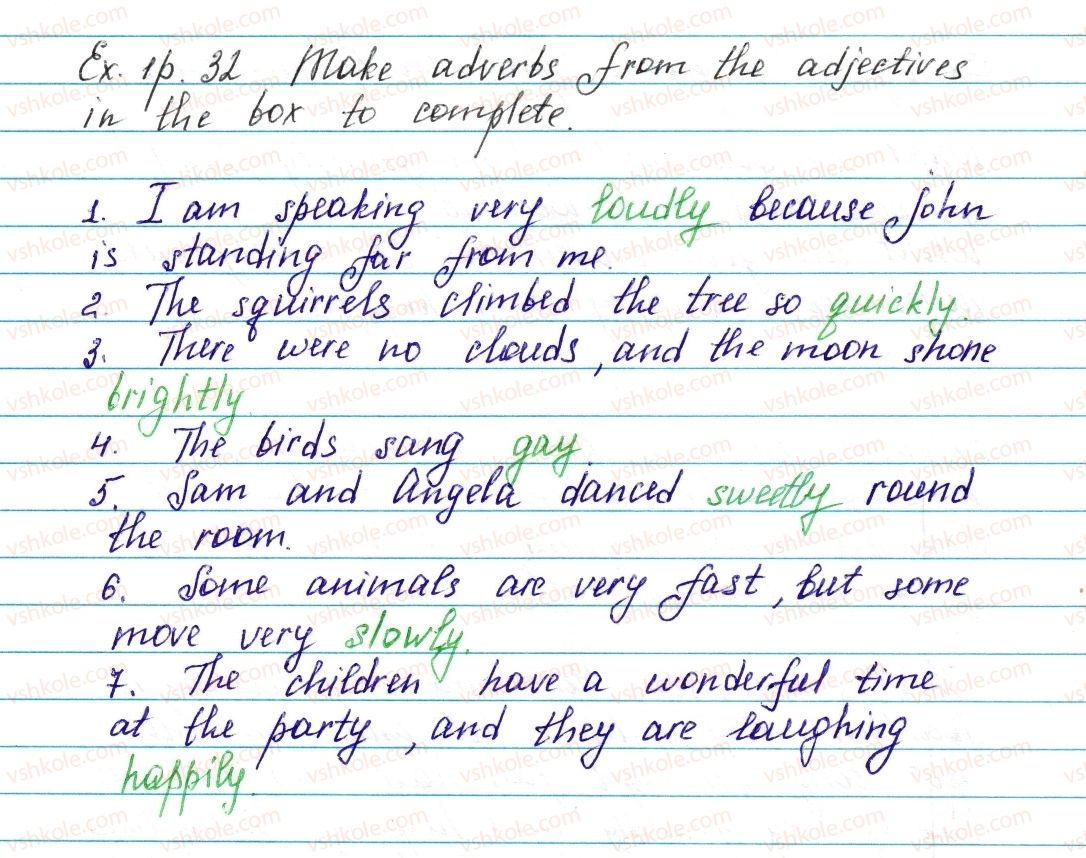 Ex. 1p. 32 Make adverbs from the adjectives
in the box to complete.
1. I am speaking very loudly because John
is standing far from me.
2. The squirrels climbed the tree so quickly.
3. There were no clouds, and the moon shone
brightly.
4. The birds sang gay.
5. Sam and Angela danced sweetly round
the room.
6. Some animals are very fast, but some
move very slowly.
7. The children have a wonderful time
at the party, and they are laughing
happily.
vshkole.com